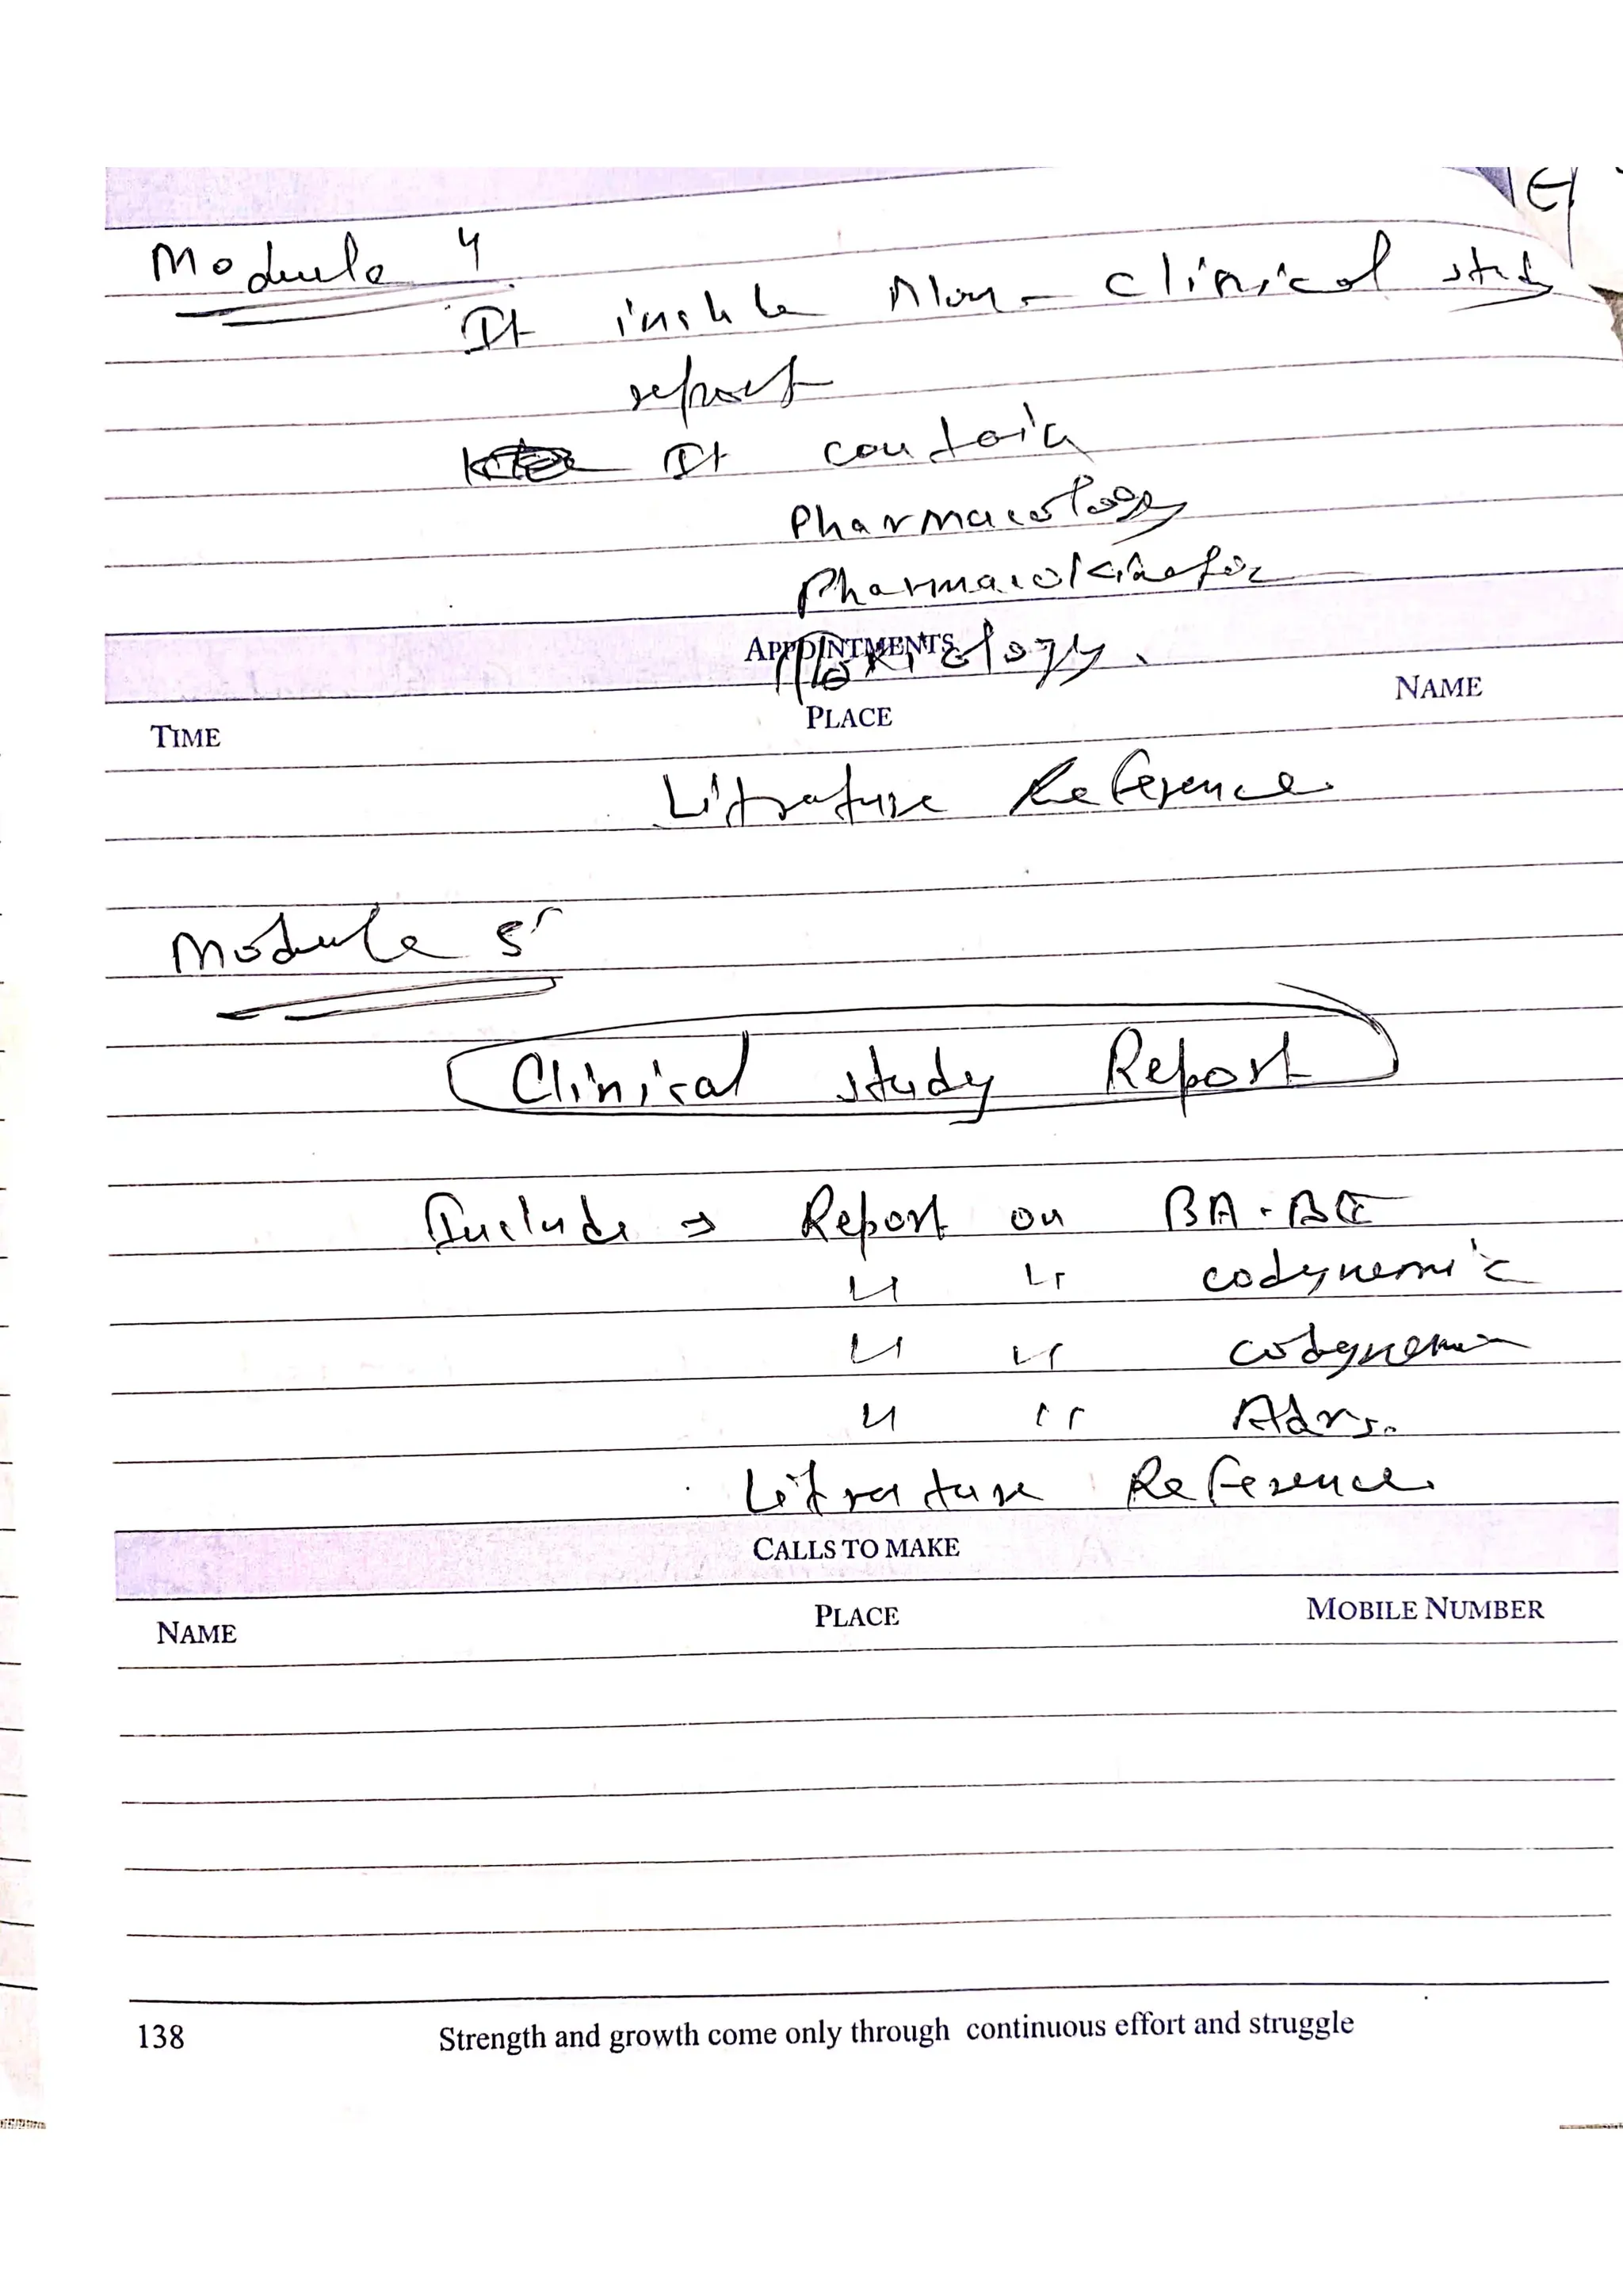 Module 4
It Non-clinical study
report
It contain
Pharmacology
Pharmacokinetic
APPOINTMENTS
Toxicology.
TIME PLACE NAME
Litrature Reference.
Module 5
Clinical study Report
Include → Report on BA-BE
" " codynemic
" "
" " Adrs.
Litrature Reference.
CALLS TO MAKE
NAME PLACE MOBILE NUMBER
138 Strength and growth come only through continuous effort and struggle